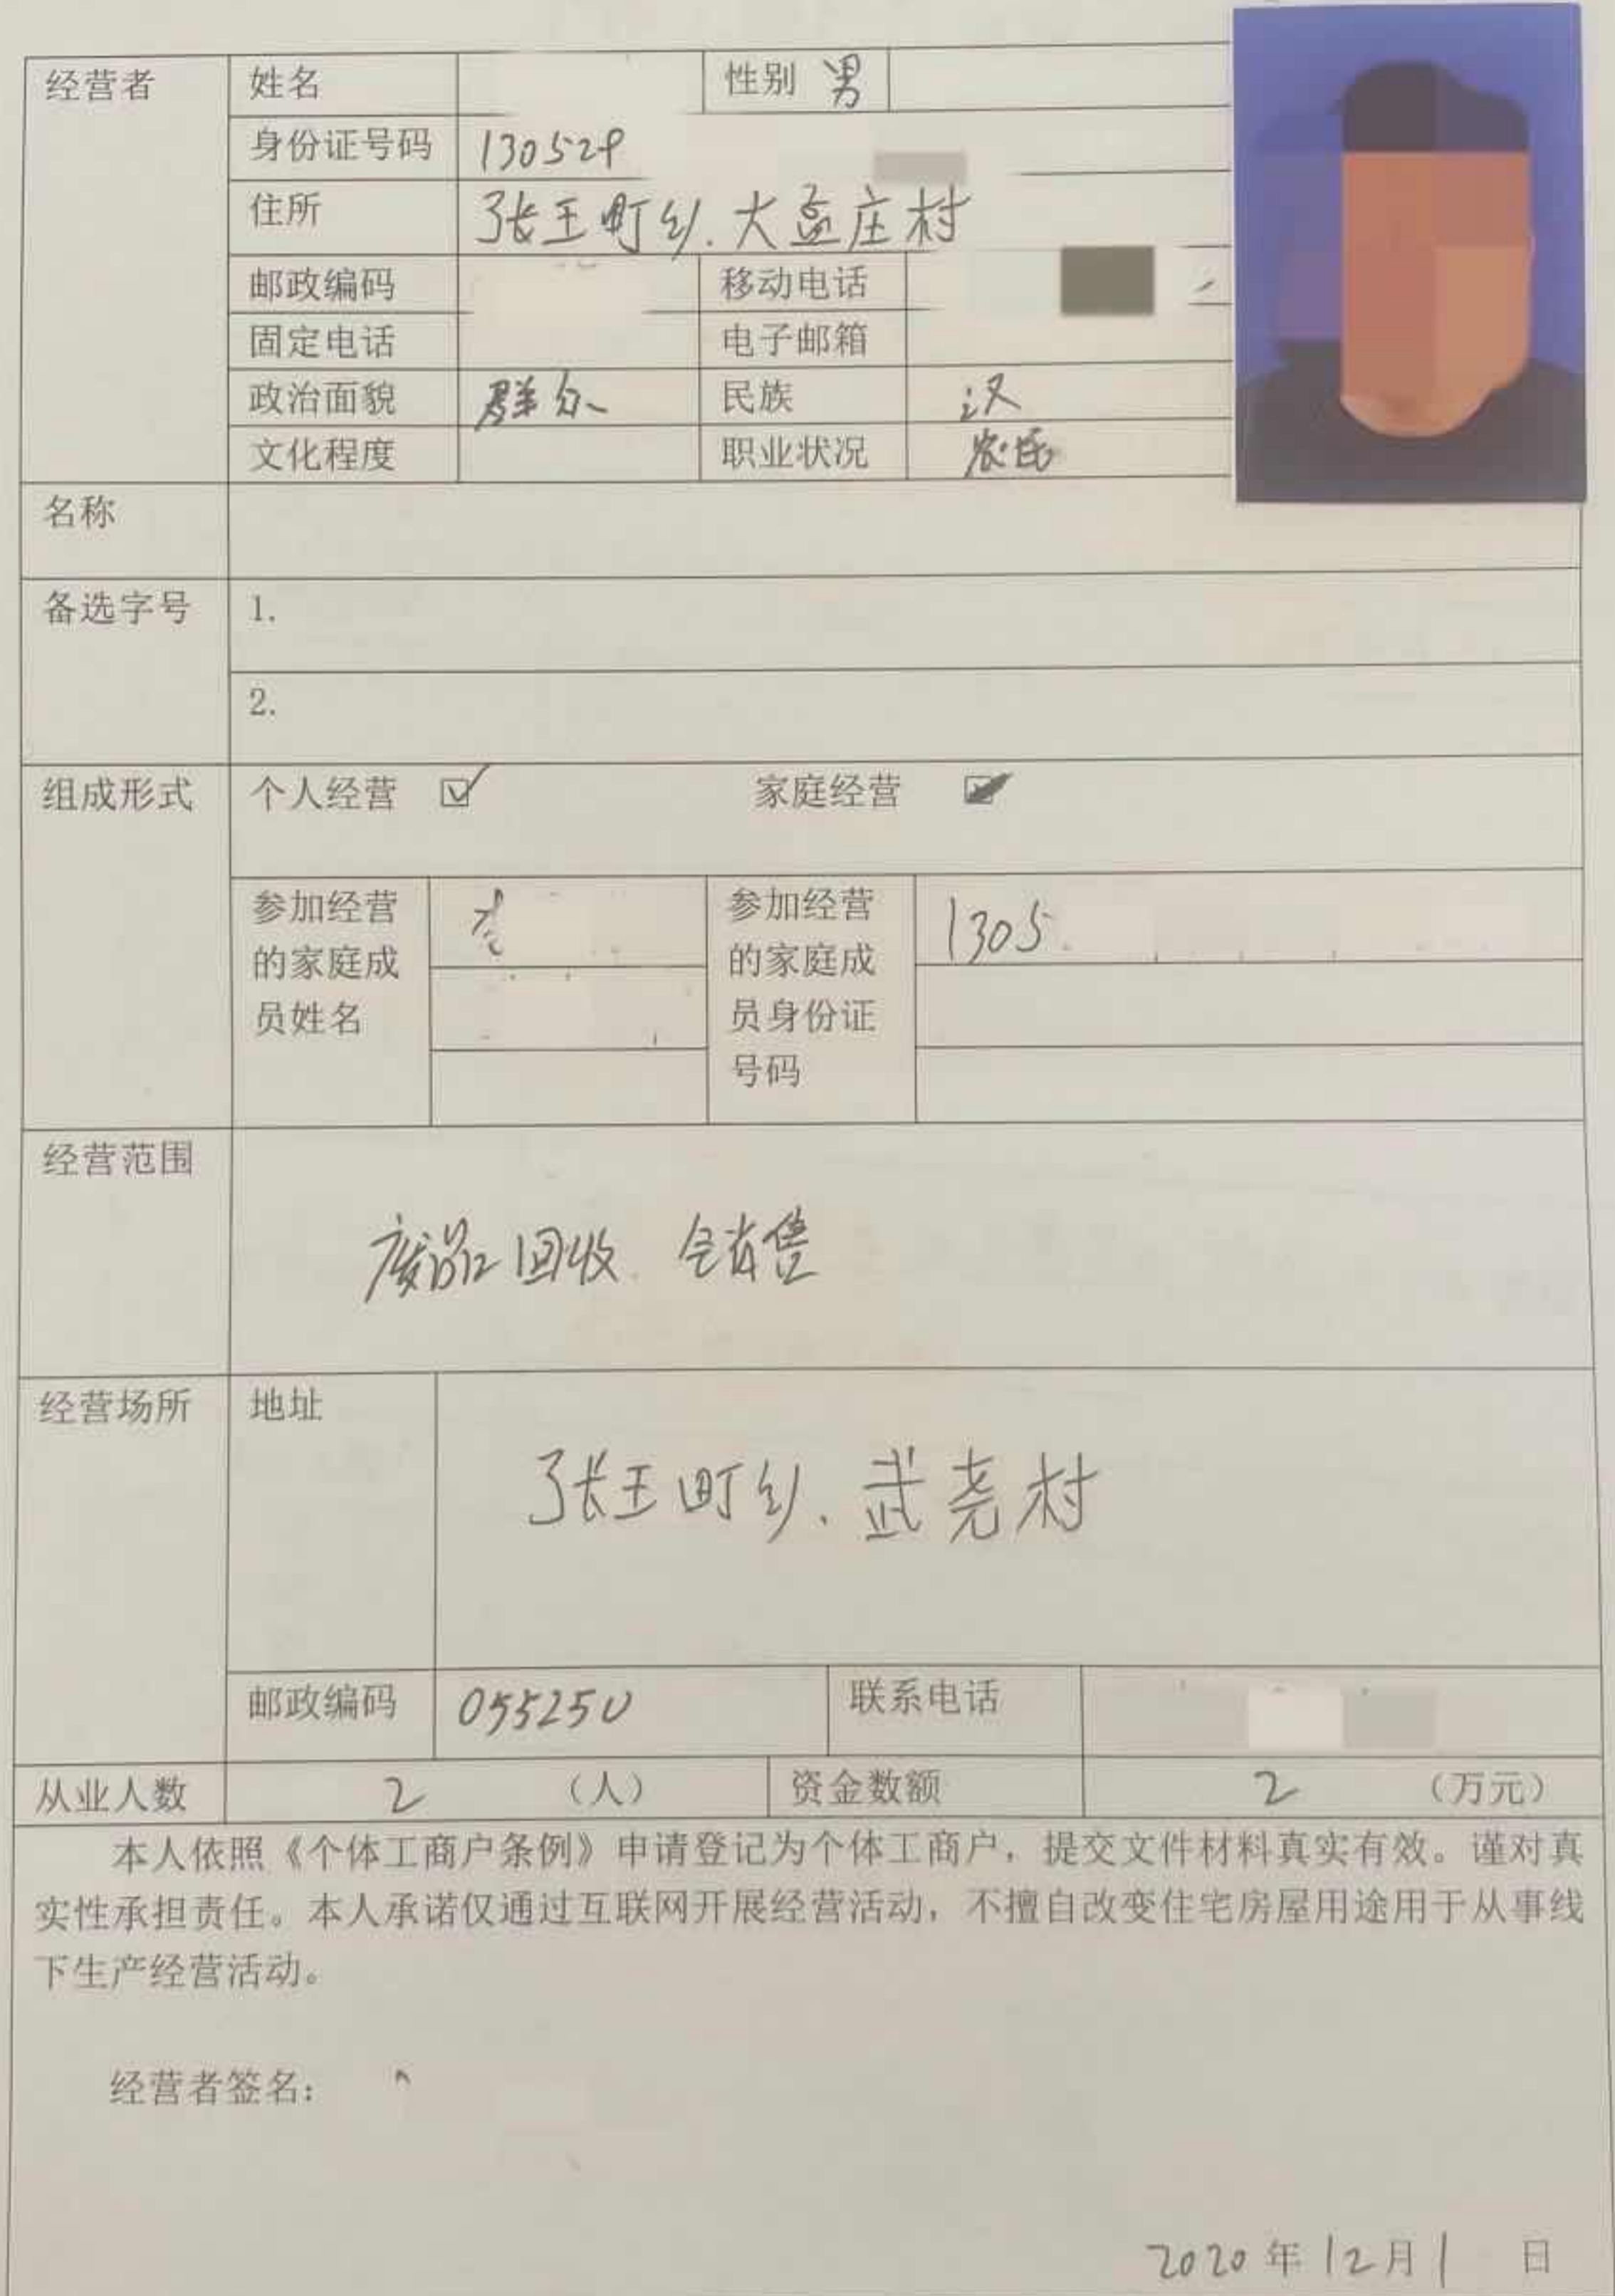 经营者 姓名 性别 男
身份证号码 130529
住所 张王町乡.大孟庄村
邮政编码 移动电话
固定电话 电子邮箱
政治面貌 群众 民族 汉
文化程度 职业状况 农民
名称
备选字号 1.
2.
组成形式 个人经营 ☑ 家庭经营
参加经营的家庭成员姓名 参加经营的家庭成员身份证号码 1305
经营范围
废品回收 销售
经营场所 地址
张王町乡.武尧村
邮政编码 055250 联系电话
从业人数 2 (人) 资金数额 2 (万元)
本人依照《个体工商户条例》申请登记为个体工商户，提交文件材料真实有效。谨对真
实性承担责任。本人承诺仅通过互联网开展经营活动，不擅自改变住宅房屋用途用于从事线
下生产经营活动。
经营者签名：
2020年12月1 日